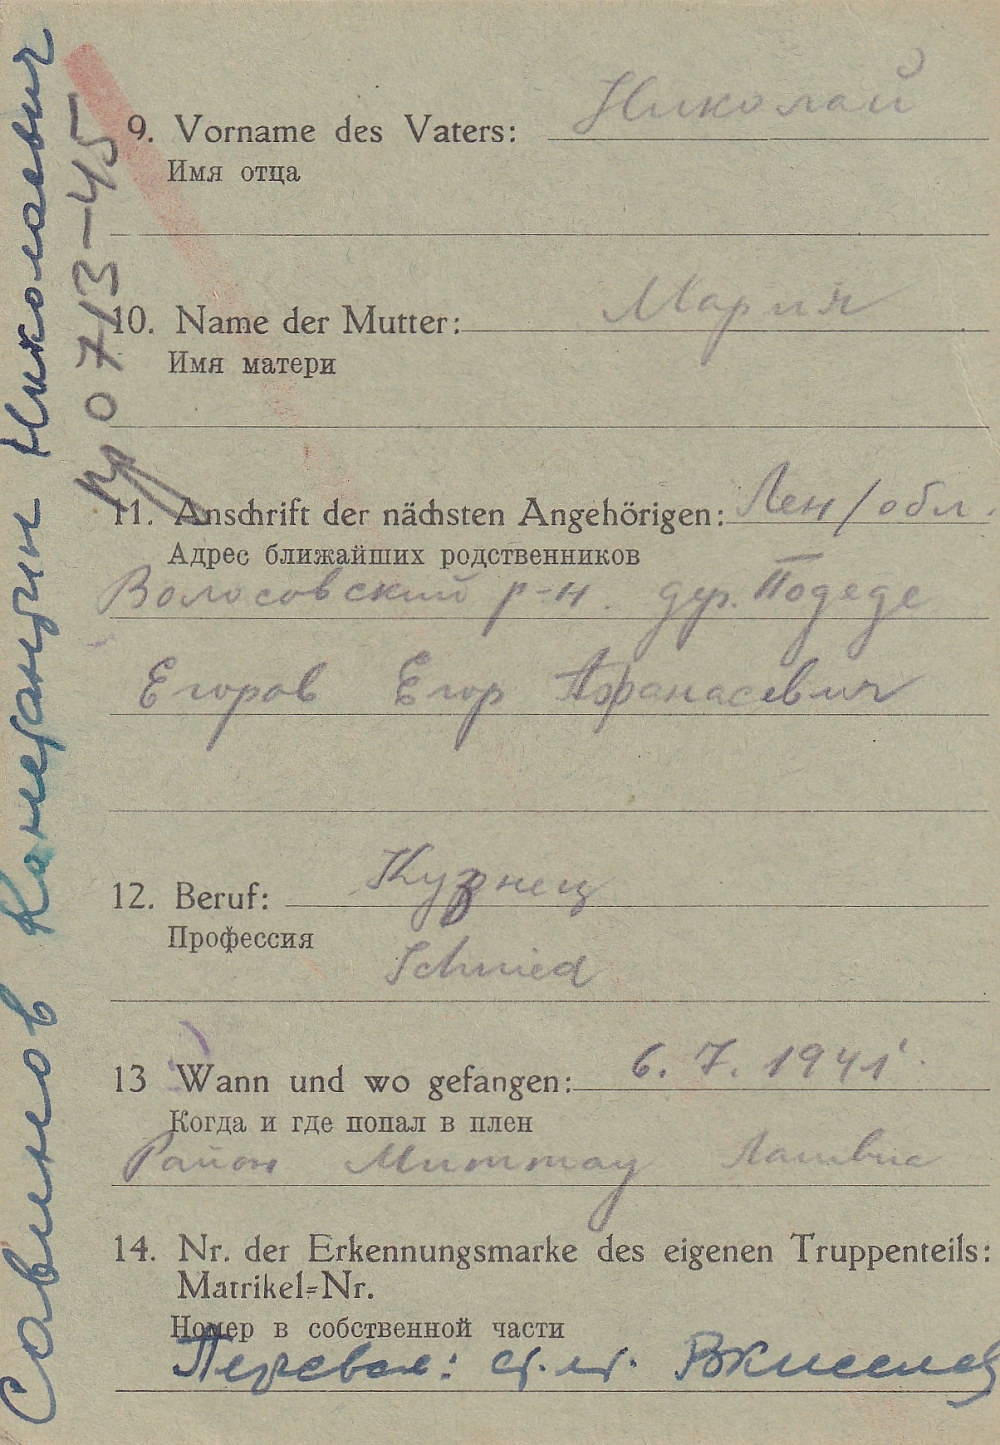 9. Vorname des Vaters: Николай
Имя отца
10. Name der Mutter: Мария
Имя матери
11. Anschrift der nächsten Angehörigen: Лен/обл.
Адрес ближайших родственников
Волосовский р-н. дер. Подеде
Егоров Егор Афанасевич
12. Beruf: Кузнец
Профессия
Schmied
13 Wann und wo gefangen: 6. 7. 1941
Когда и где попал в плен
Район Миттау Латвиа
14. Nr. der Erkennungsmarke des eigenen Truppenteils:
Matrikel=Nr.
Номер в собственной части
Перевел:
Савинов Константин Николаевич
0713-45